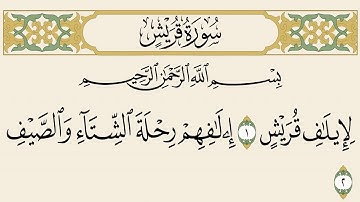 سُورَةُ قُرَيْشٍ
بِسْمِ ٱللَّهِ ٱلرَّحْمَٰنِ ٱلرَّحِيمِ
لِإِيلَٰفِ قُرَيْشٍ ١ إِۦلَٰفِهِمْ رِحْلَةَ ٱلشِّتَآءِ وَٱلصَّيْفِ
٢